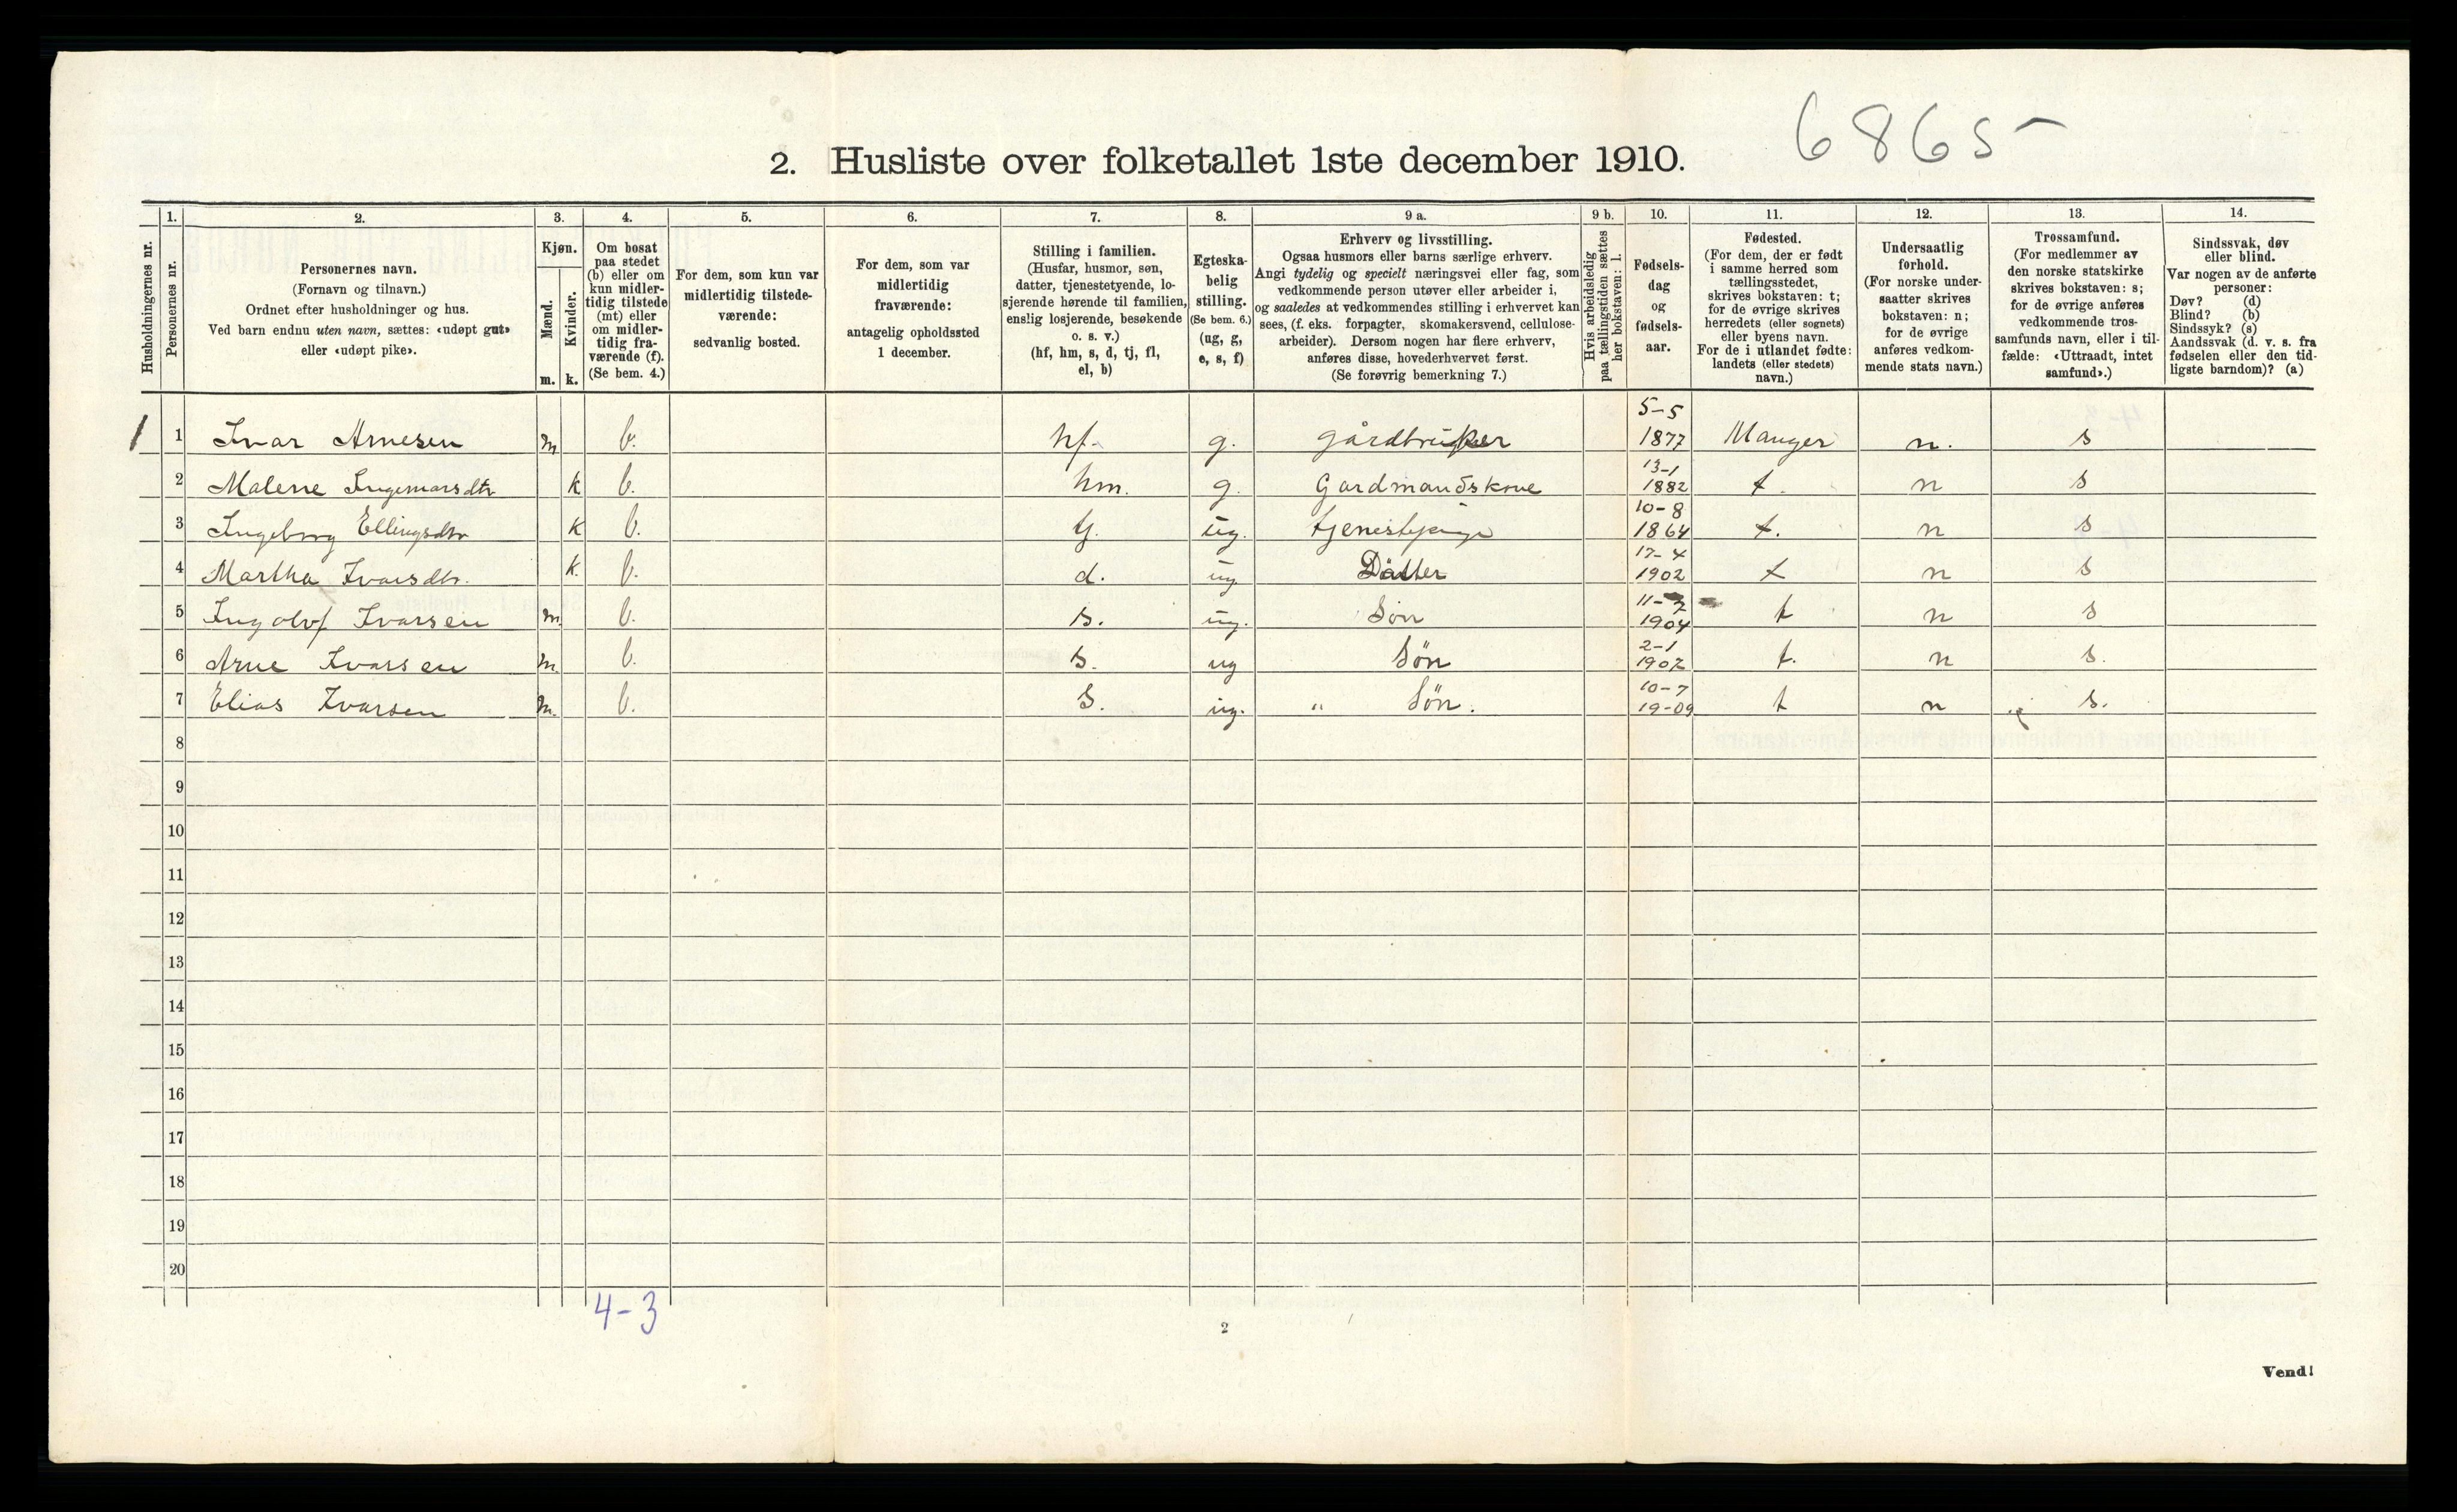 6865
2. Husliste over folketallet 1ste december 1910.
1. 2. 3. 4. 5. 6. 7. 8. 9 a. 9 b. 10. 11. 12. 13. 14.
Husholdningernes nr.
Personernes nr.
Personernes navn.
(Fornavn og tilnavn.)
Ordnet efter husholdninger og hus.
Ved barn endnu uten navn, sættes: «udøpt gut»
eller «udøpt pike».
Kjøn.
Mænd.
Kvinder.
m. k.
Om bosat
paa stedet
(b) eller om
kun midler-
tidig tilstede
(mt) eller
om midler-
tidig fra-
værende (f).
(Se bem. 4.)
For dem, som kun var
midlertidig tilstede-
værende:
sedvanlig bosted.
For dem, som var
midlertidig
fraværende:
antagelig opholdssted
1 december.
Stilling i familien.
(Husfar, husmor, søn,
datter, tjenestetyende, lo-
sjerende hørende til familien,
enslig losjerende, besøkende
o. s. v.)
(hf, hm, s, d, tj, fl,
el, b)
Egteska-
belig
stilling.
(Se bem. 6.)
(ug, g,
e, s, f)
Erhverv og livsstilling.
Ogsaa husmors eller barns særlige erhverv.
Angi tydelig og specielt næringsvei eller fag, som
vedkommende person utøver eller arbeider i,
og saaledes at vedkommendes stilling i erhvervet kan
sees, (f. eks. forpagter, skomakersvend, cellulose-
arbeider). Dersom nogen har flere erhverv,
anføres disse, hovederhvervet først.
(Se forøvrig bemerkning 7.)
Hvis arbeidsledig
paa tællingstiden sættes
her bokstaven: l.
Fødsels-
dag
og
fødsels-
aar.
Fødested.
(For dem, der er født
i samme herred som
tællingsstedet,
skrives bokstaven: t;
for de øvrige skrives
herredets (eller sognets)
eller byens navn.
For de i utlandet fødte:
landets (eller stedets)
navn.)
Undersaatlig
forhold.
(For norske under-
saatter skrives
bokstaven: n;
for de øvrige
anføres vedkom-
mende stats navn.)
Trossamfund.
(For medlemmer av
den norske statskirke
skrives bokstaven: s;
for de øvrige anføres
vedkommende tros-
samfunds navn, eller i til-
fælde: «Uttraadt, intet
samfund».)
Sindssvak, døv
eller blind.
Var nogen av de anførte
personer:
Døv? (d)
Blind? (b)
Sindssyk? (s)
Aandssvak (d. v. s. fra
fødselen eller den tid-
ligste barndom)? (a)
1 1 Ivar Arnesen m b. hf. g. gårdbruker 5-5 1877 Manger n. s
2 Malene Ingemarsdtr k b. hm. g. Gardmandskone 13-1 1882 t. n s
3 Ingeborg Ellingsdtr k b. tj. ug. tjenestepige 10-8 1864 t. n s
4 Martha Ivarsdtr. k. b. d. ug. Datter 17-4 1902 t n s
5 Ingolvf Ivarsen m. b. s. ug. Søn 11-7 1904 t n s
6 Arne Ivarsen m. b. s. ug Søn 2-1 1907 t. n s.
7 Elias Ivarsen m. b. s. ug. " Søn. 10-7 19-09 t n s.
8
9
10
11
12
13
14
15
16
17
18
19
20
4-3
2
Vend!